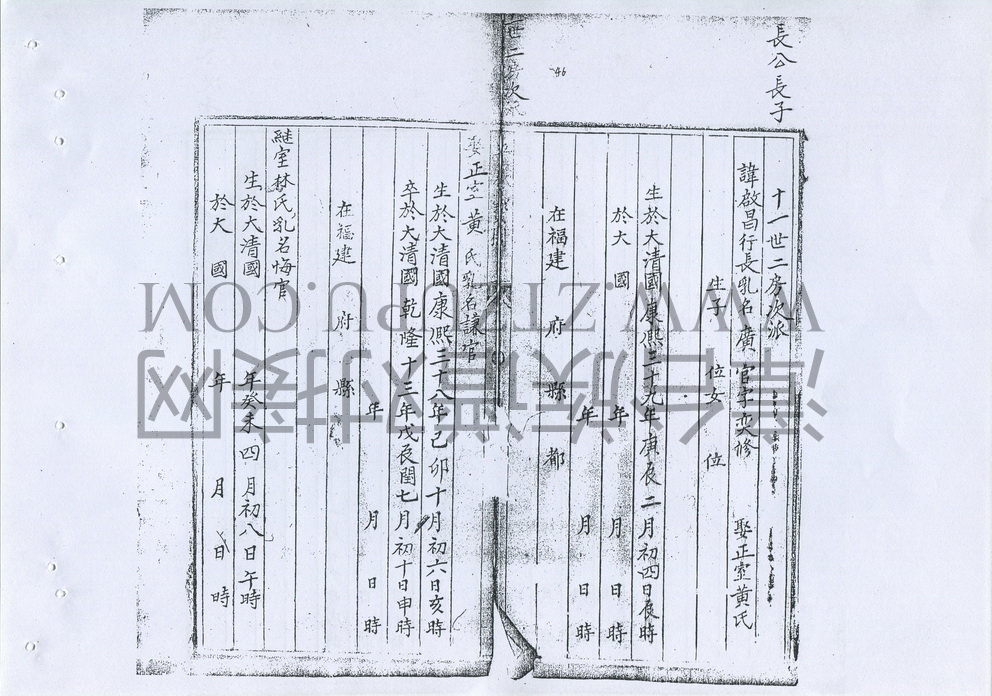 長公長子
十一世二房次派
諱啟昌行長乳名廣 官字奕修 娶正室黃氏
生子 位女 位
生於大清國康熙三十九年庚辰二月初四日辰時
於大 國 年 月 日 時
年 月 日 時
在福建 府 縣 都
46
世二房次派
娶正室黃 氏乳名謙官
生於大清國康熙三十八年己卯十月初六日亥時
卒於大清國乾隆十三年戊辰閏七月初十日申時
年 月 日 時
在福建 府 縣
継室林氏乳名悔官
生於大清國 年癸未四月初八日午時
於大 國 年 月 日 時
WWW.ZTZUPU.COM
漳台族谱对接网